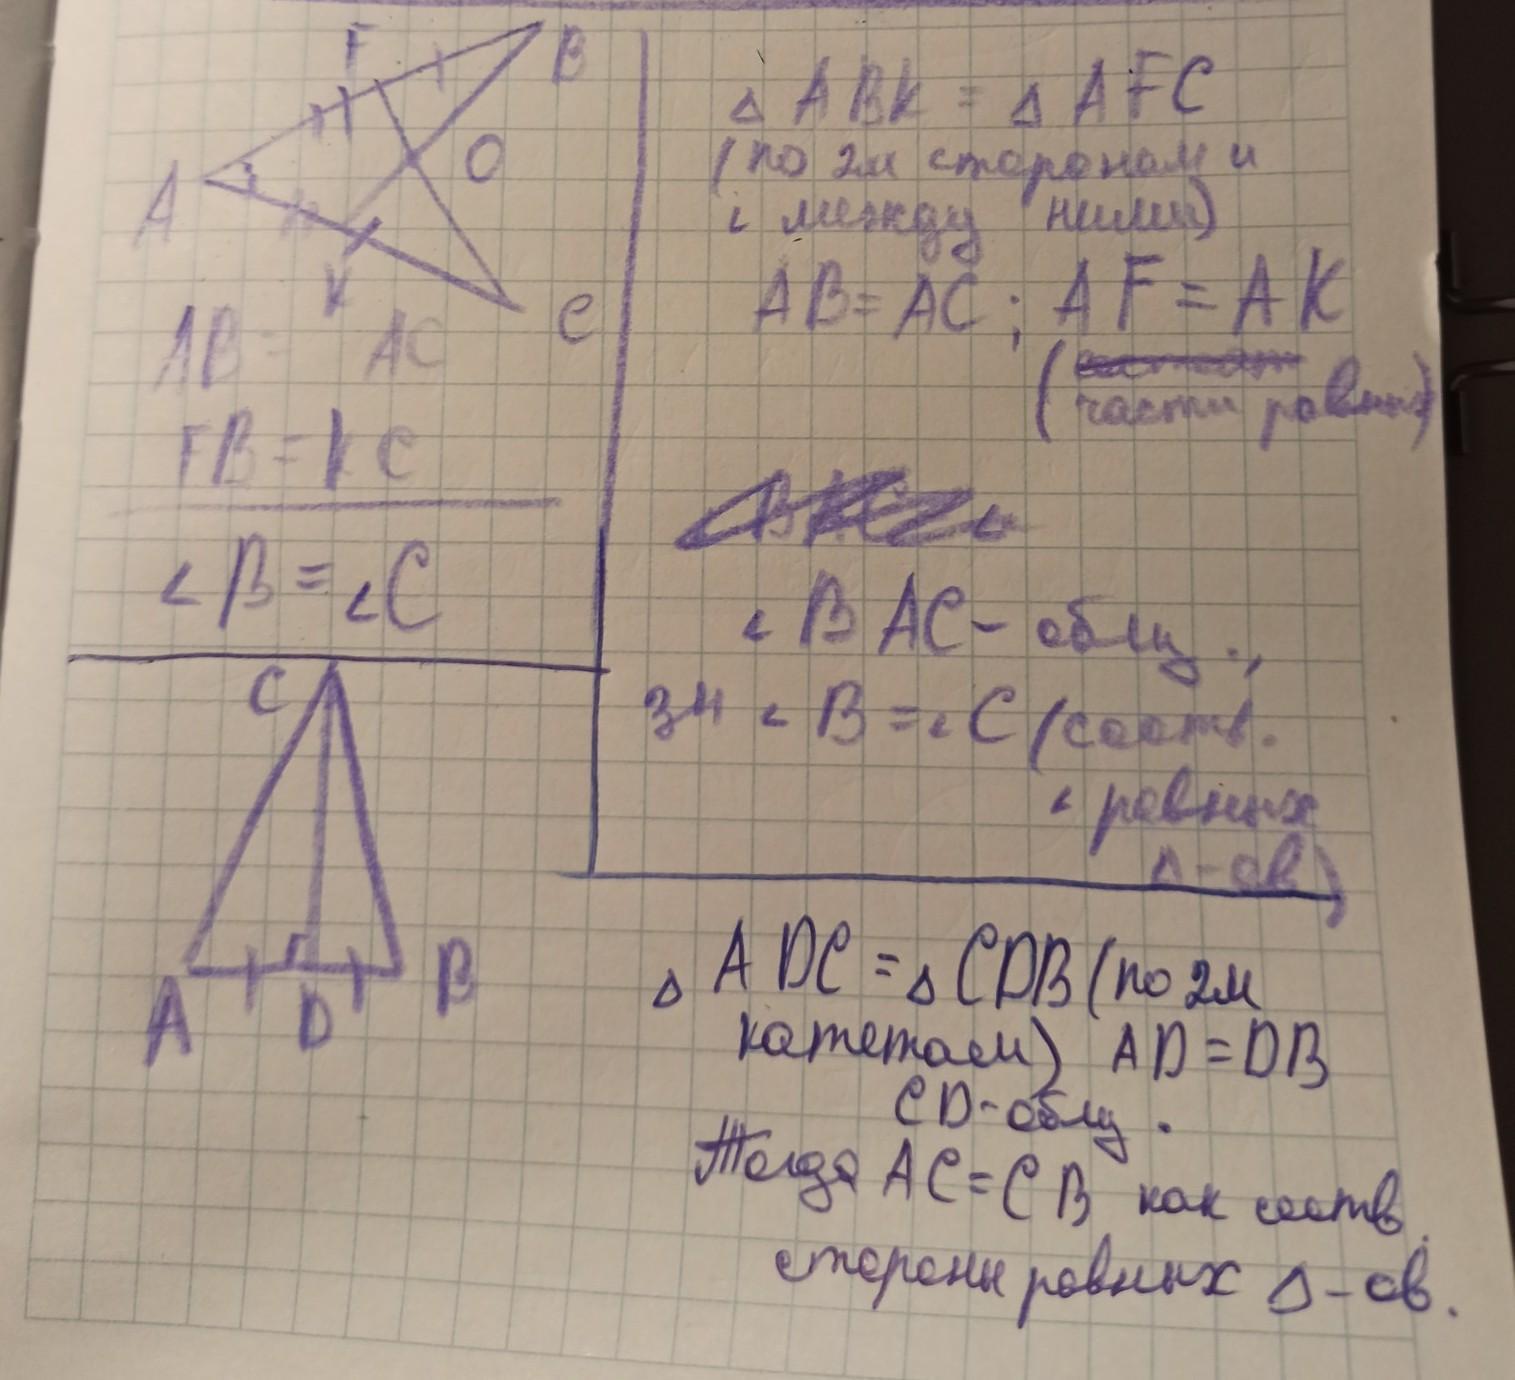 F
B
A
O
K
C
AB = AC
FB = KC
∠B = ∠C
△ ABK = △ AFC
(по 2м сторонам и
∠ между ними)
AB = AC ; AF = AK
(
части равных)
∠BAC - общ.,
зн ∠B = ∠C (соотв.
∠ равных
△-ов)
C
A
D
B
△ ADC = △ CDB (по 2м
катетам) AD = DB
CD - общ.
Тогда AC = CB как соотв.
стороны равных △-ов.